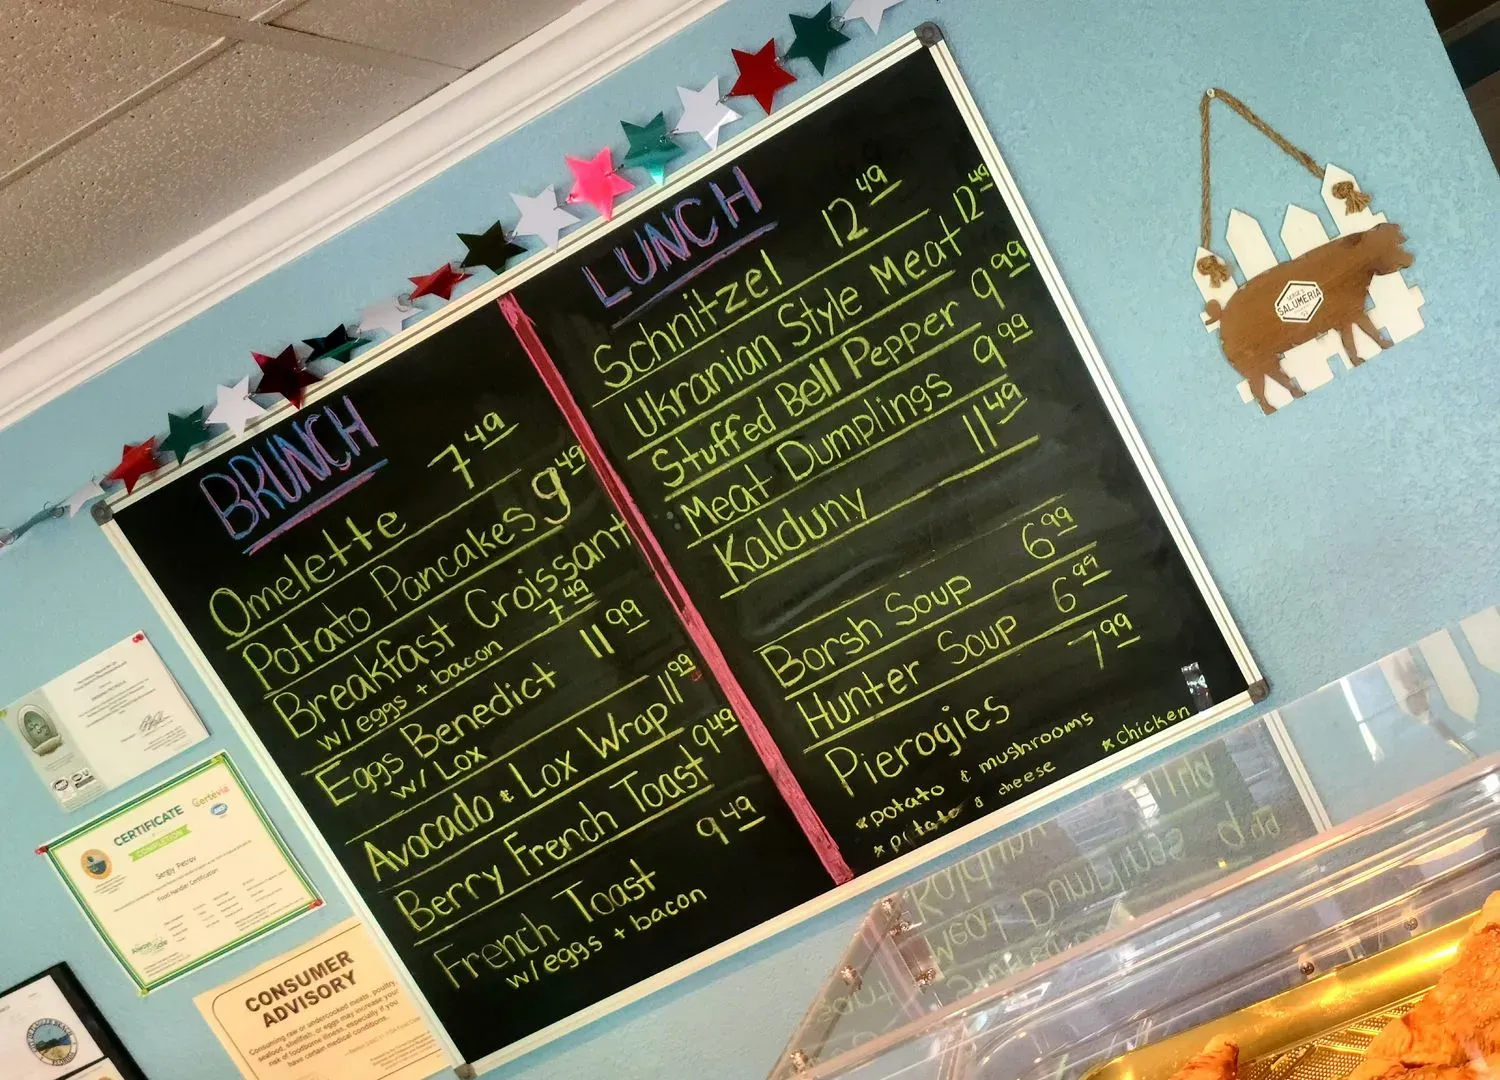 BRUNCH
Omelette 7 49
Potato Pancakes 9 49
Breakfast Croissant
w/ eggs + bacon 7 49
Eggs Benedict 11 99
w/ Lox
Avocado & Lox Wrap 11 99
Berry French Toast 9 49
French Toast 9 49
w/ eggs + bacon
LUNCH
Schnitzel 12 49
Ukranian Style Meat 12 49
Stuffed Bell Pepper 9 99
Meat Dumplings 9 99
Kalduny 11 49
Borsh Soup 6 99
Hunter Soup 6 99
Pierogies 7 99
*potato & mushrooms *chicken
*potato & cheese
SALUMERIA
CERTIFICATE
COMPLETION
Certevia
Sergiy Petrov
Food Handler Certification
CONSUMER
ADVISORY
Consuming raw or undercooked meats, poultry,
seafood, shellfish, or eggs may increase your
risk of foodborne illness, especially if you
have certain medical conditions.